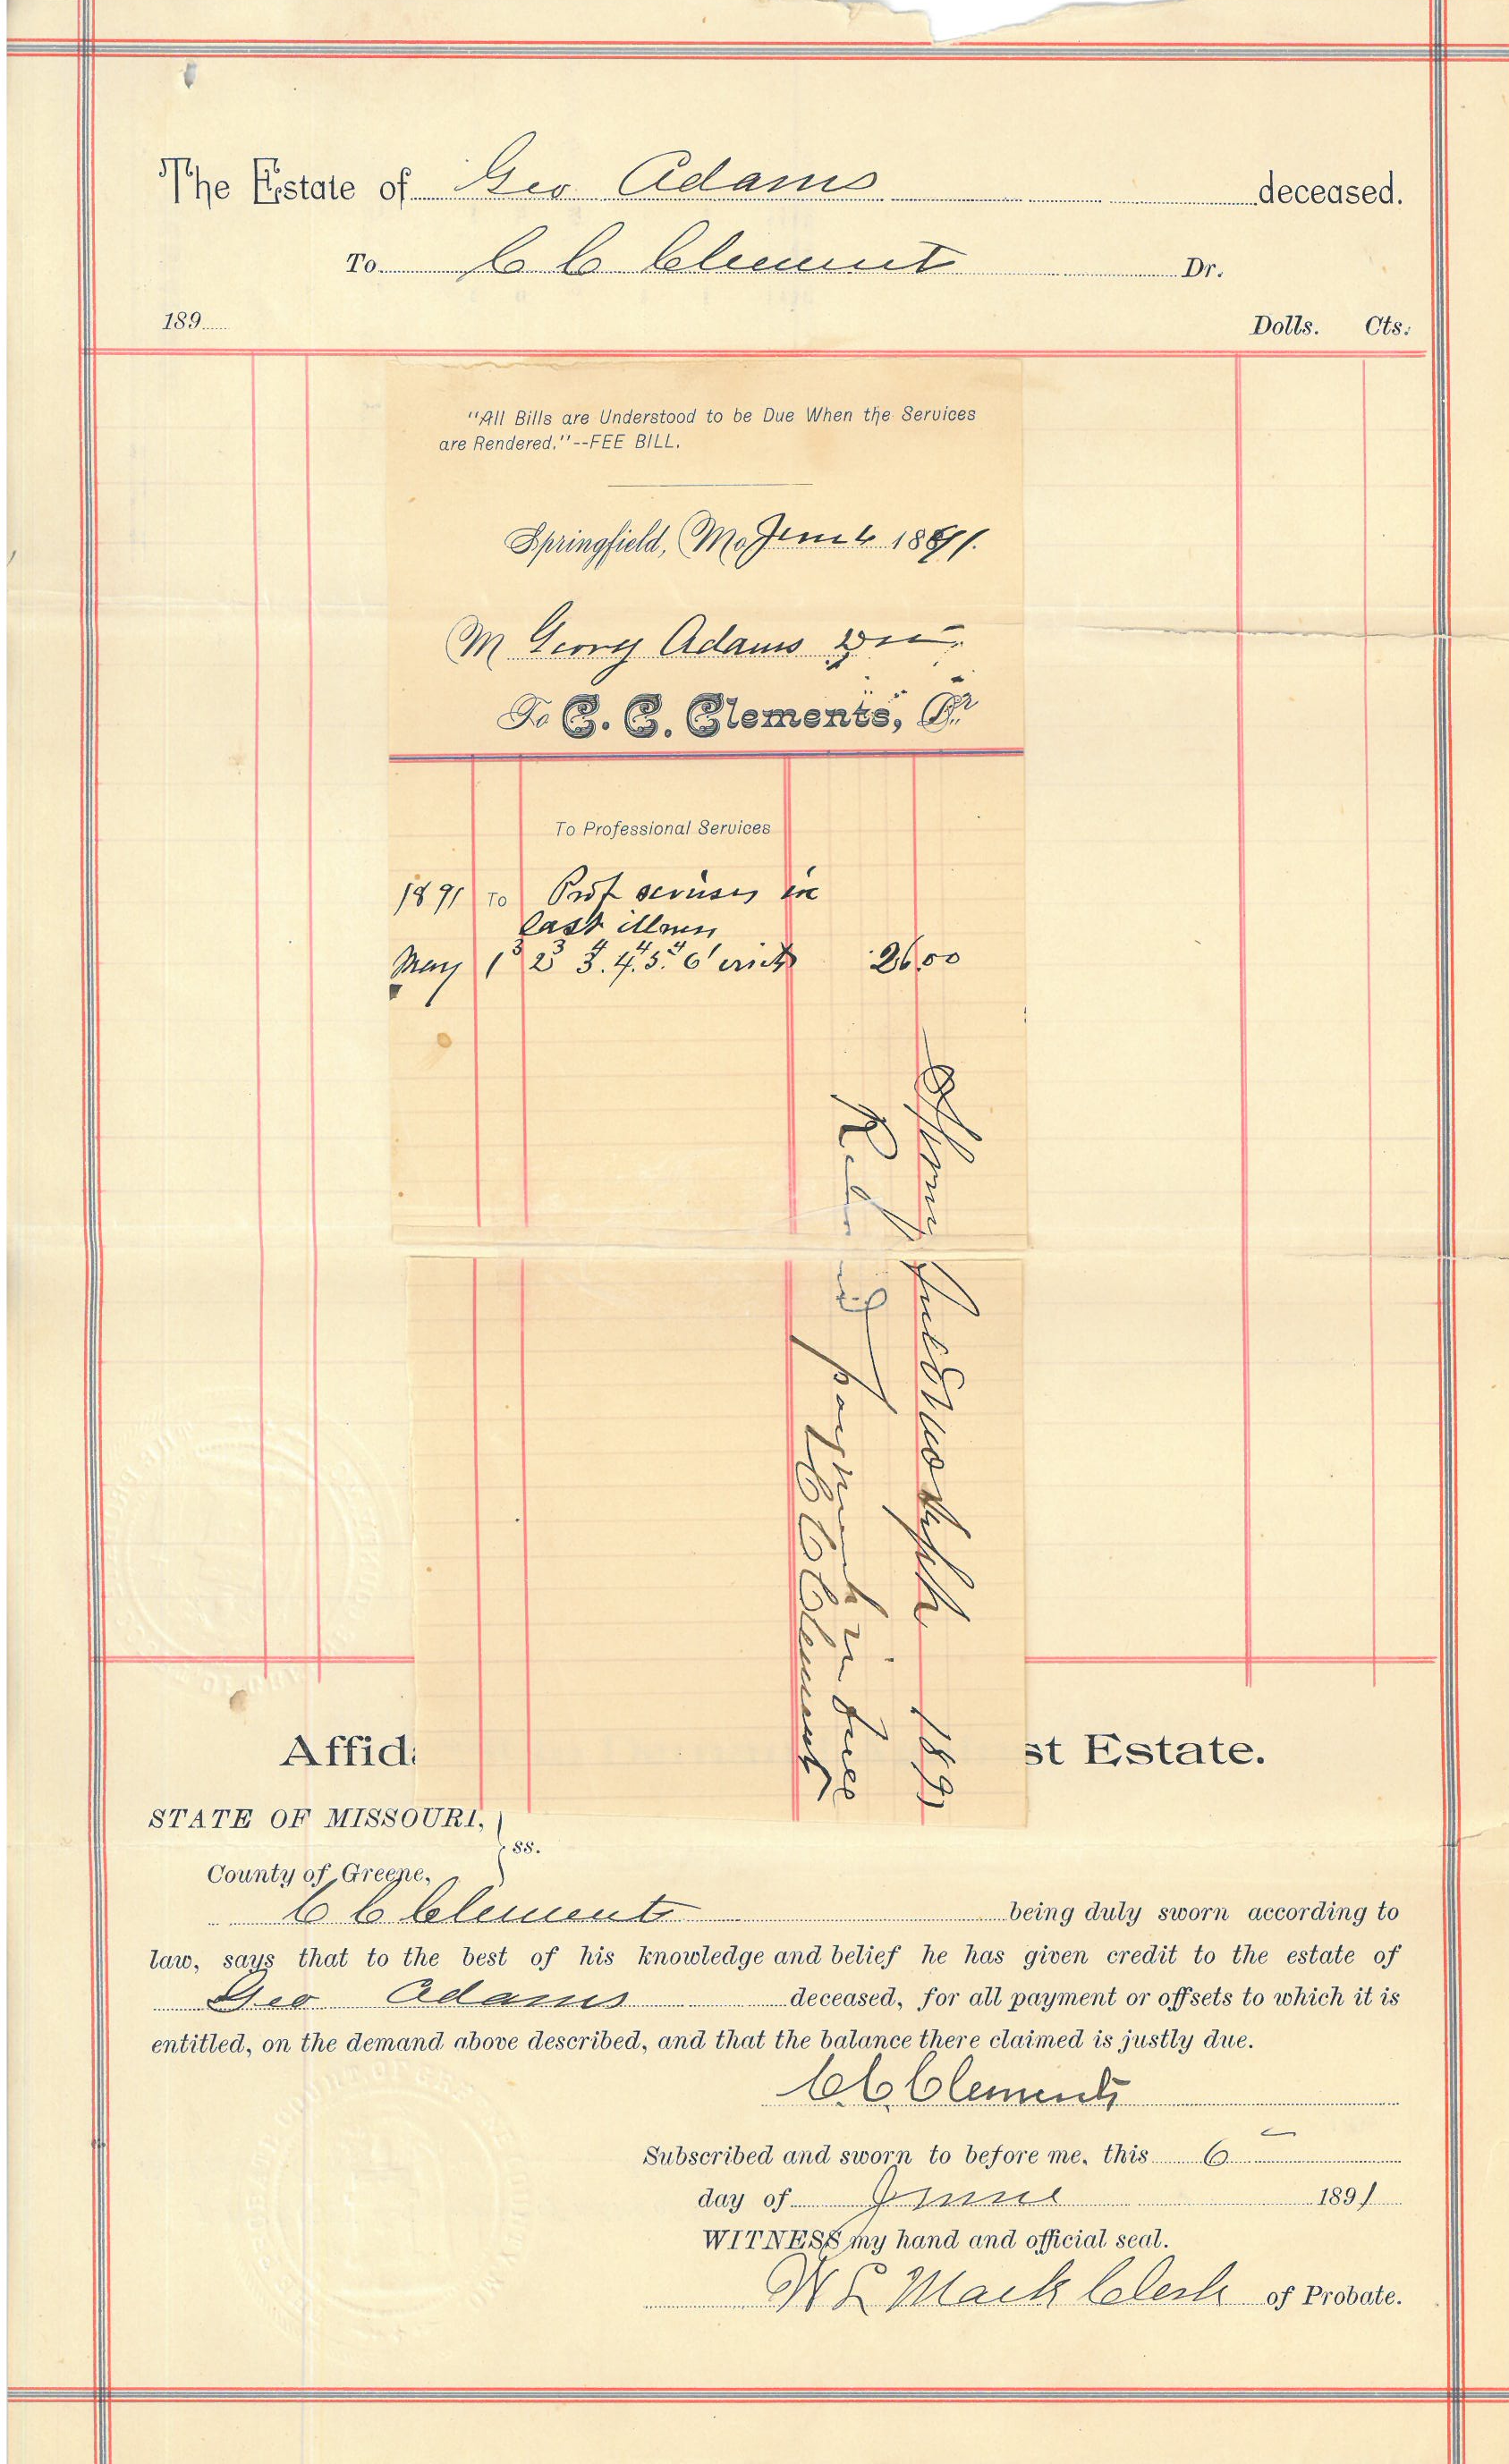 The Estate of Geo Adams deceased.
To C C Clements Dr.
189
Dolls. Cts.
"All Bills are Understood to be Due When the Services
are Rendered."--FEE BILL.
Springfield, Mo June 6 1891.
M Georg Adams
To C. C. Clements, Dr
To Professional Services
1891 To Prof services in
last illness
May 1 2 3. 4. 5. 6 visits 26.00
1891
Received payment in full
C C Clements
Affid st Estate.
STATE OF MISSOURI,
ss.
County of Greene,
C C Clements being duly sworn according to
law, says that to the best of his knowledge and belief he has given credit to the estate of
Geo Adams deceased, for all payment or offsets to which it is
entitled, on the demand above described, and that the balance there claimed is justly due.
C.C. Clements
Subscribed and sworn to before me, this 6
day of June 1891
WITNESS my hand and official seal.
Mack Clerk of Probate.